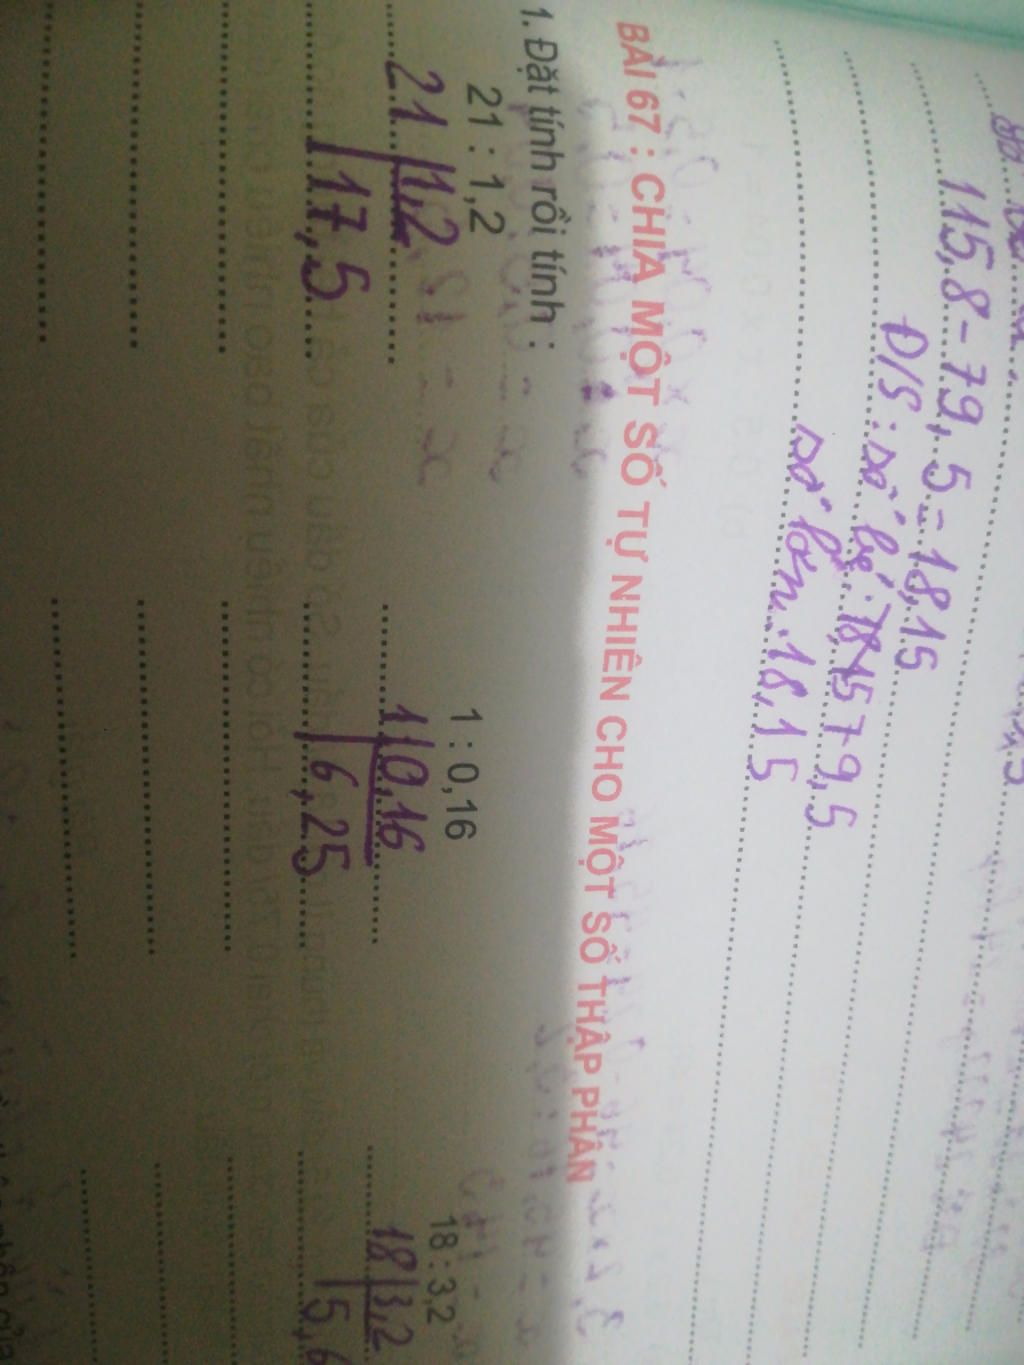 115,8 - 79,5 = 18,15
Đ/S : số bé : 79,5
số lớn : 18,15
BÀI 67 : CHIA MỘT SỐ TỰ NHIÊN CHO MỘT SỐ THẬP PHÂN
1. Đặt tính rồi tính :
21 : 1,2 1 : 0,16 18 : 3,2
21 1,2 1 0,16 18 3,2
17,5 6,25 5,6